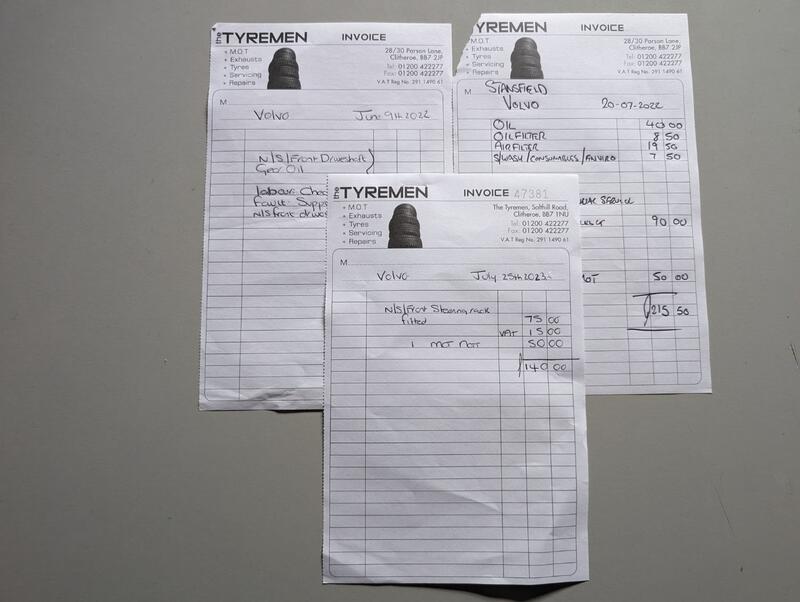 the TYREMEN INVOICE
28/30 Parson Lane,
Clitheroe, BB7 2JP
Tel: 01200 422277
Fax: 01200 422277
V.A.T Reg No. 291 1490 61
+ M.O.T
+ Exhausts
+ Tyres
+ Servicing
+ Repairs
M
Volvo June 9th 2022
N/S/Front Driveshaft
Gear Oil
labour: Chec
Fault: Supp
N/S front drives
TYREMEN INVOICE
28/30 Parson Lane,
Clitheroe, BB7 2JP
Tel: 01200 422277
Fax: 01200 422277
V.A.T Reg No. 291 1490 61
+ M.O.T
+ Exhausts
+ Tyres
+ Servicing
+ Repairs
M
STANSFIELD
VOLVO 20-07-2022
OIL 40 00
OILFILTER 8 50
AIRFILTER 19 50
S/WASH/CONSUMABLES/ENVIRO 7 50
SERVICE
90 00
MOT 50 00
£215 50
the TYREMEN INVOICE 47381
The Tyremen, Salthill Road,
Clitheroe, BB7 1NU
Tel: 01200 422277
Fax: 01200 422277
V.A.T Reg No. 291 1490 61
+ M.O.T
+ Exhausts
+ Tyres
+ Servicing
+ Repairs
M
Volvo July 25th 2023
N/S/Front Steering rack
fitted 75 00
VAT 15 00
1 MOT 50 00
£140 00